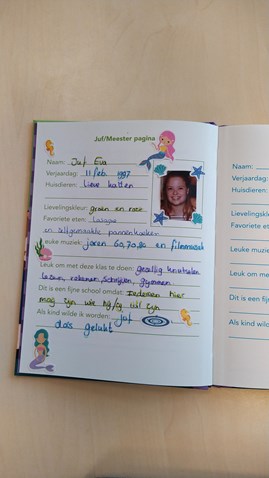 Juf/Meester pagina
Naam: Juf Eva
Verjaardag: 11 feb. 1997
Huisdieren: Lieve katten
Lievelingskleur: groen en roze
Favoriete eten: Lasagne
en allergrootste pannenkoeken
euke muziek: jaren 60,70,80 en filmmuziek
Leuk om met deze klas te doen: gezellig knutselen
lezen, rekenen, schrijven, gymmen
Dit is een fijne school omdat: Iedereen hier
mag zijn wie hij/zij wil zijn
Als kind wilde ik worden: juf
dat is gelukt
Naam:
Verjaardag:
Huisdieren:
Lievelingskleur
Favoriete eten:
Leuke muziek:
Leuk om met
Dit is een fijne
Als kind wilde